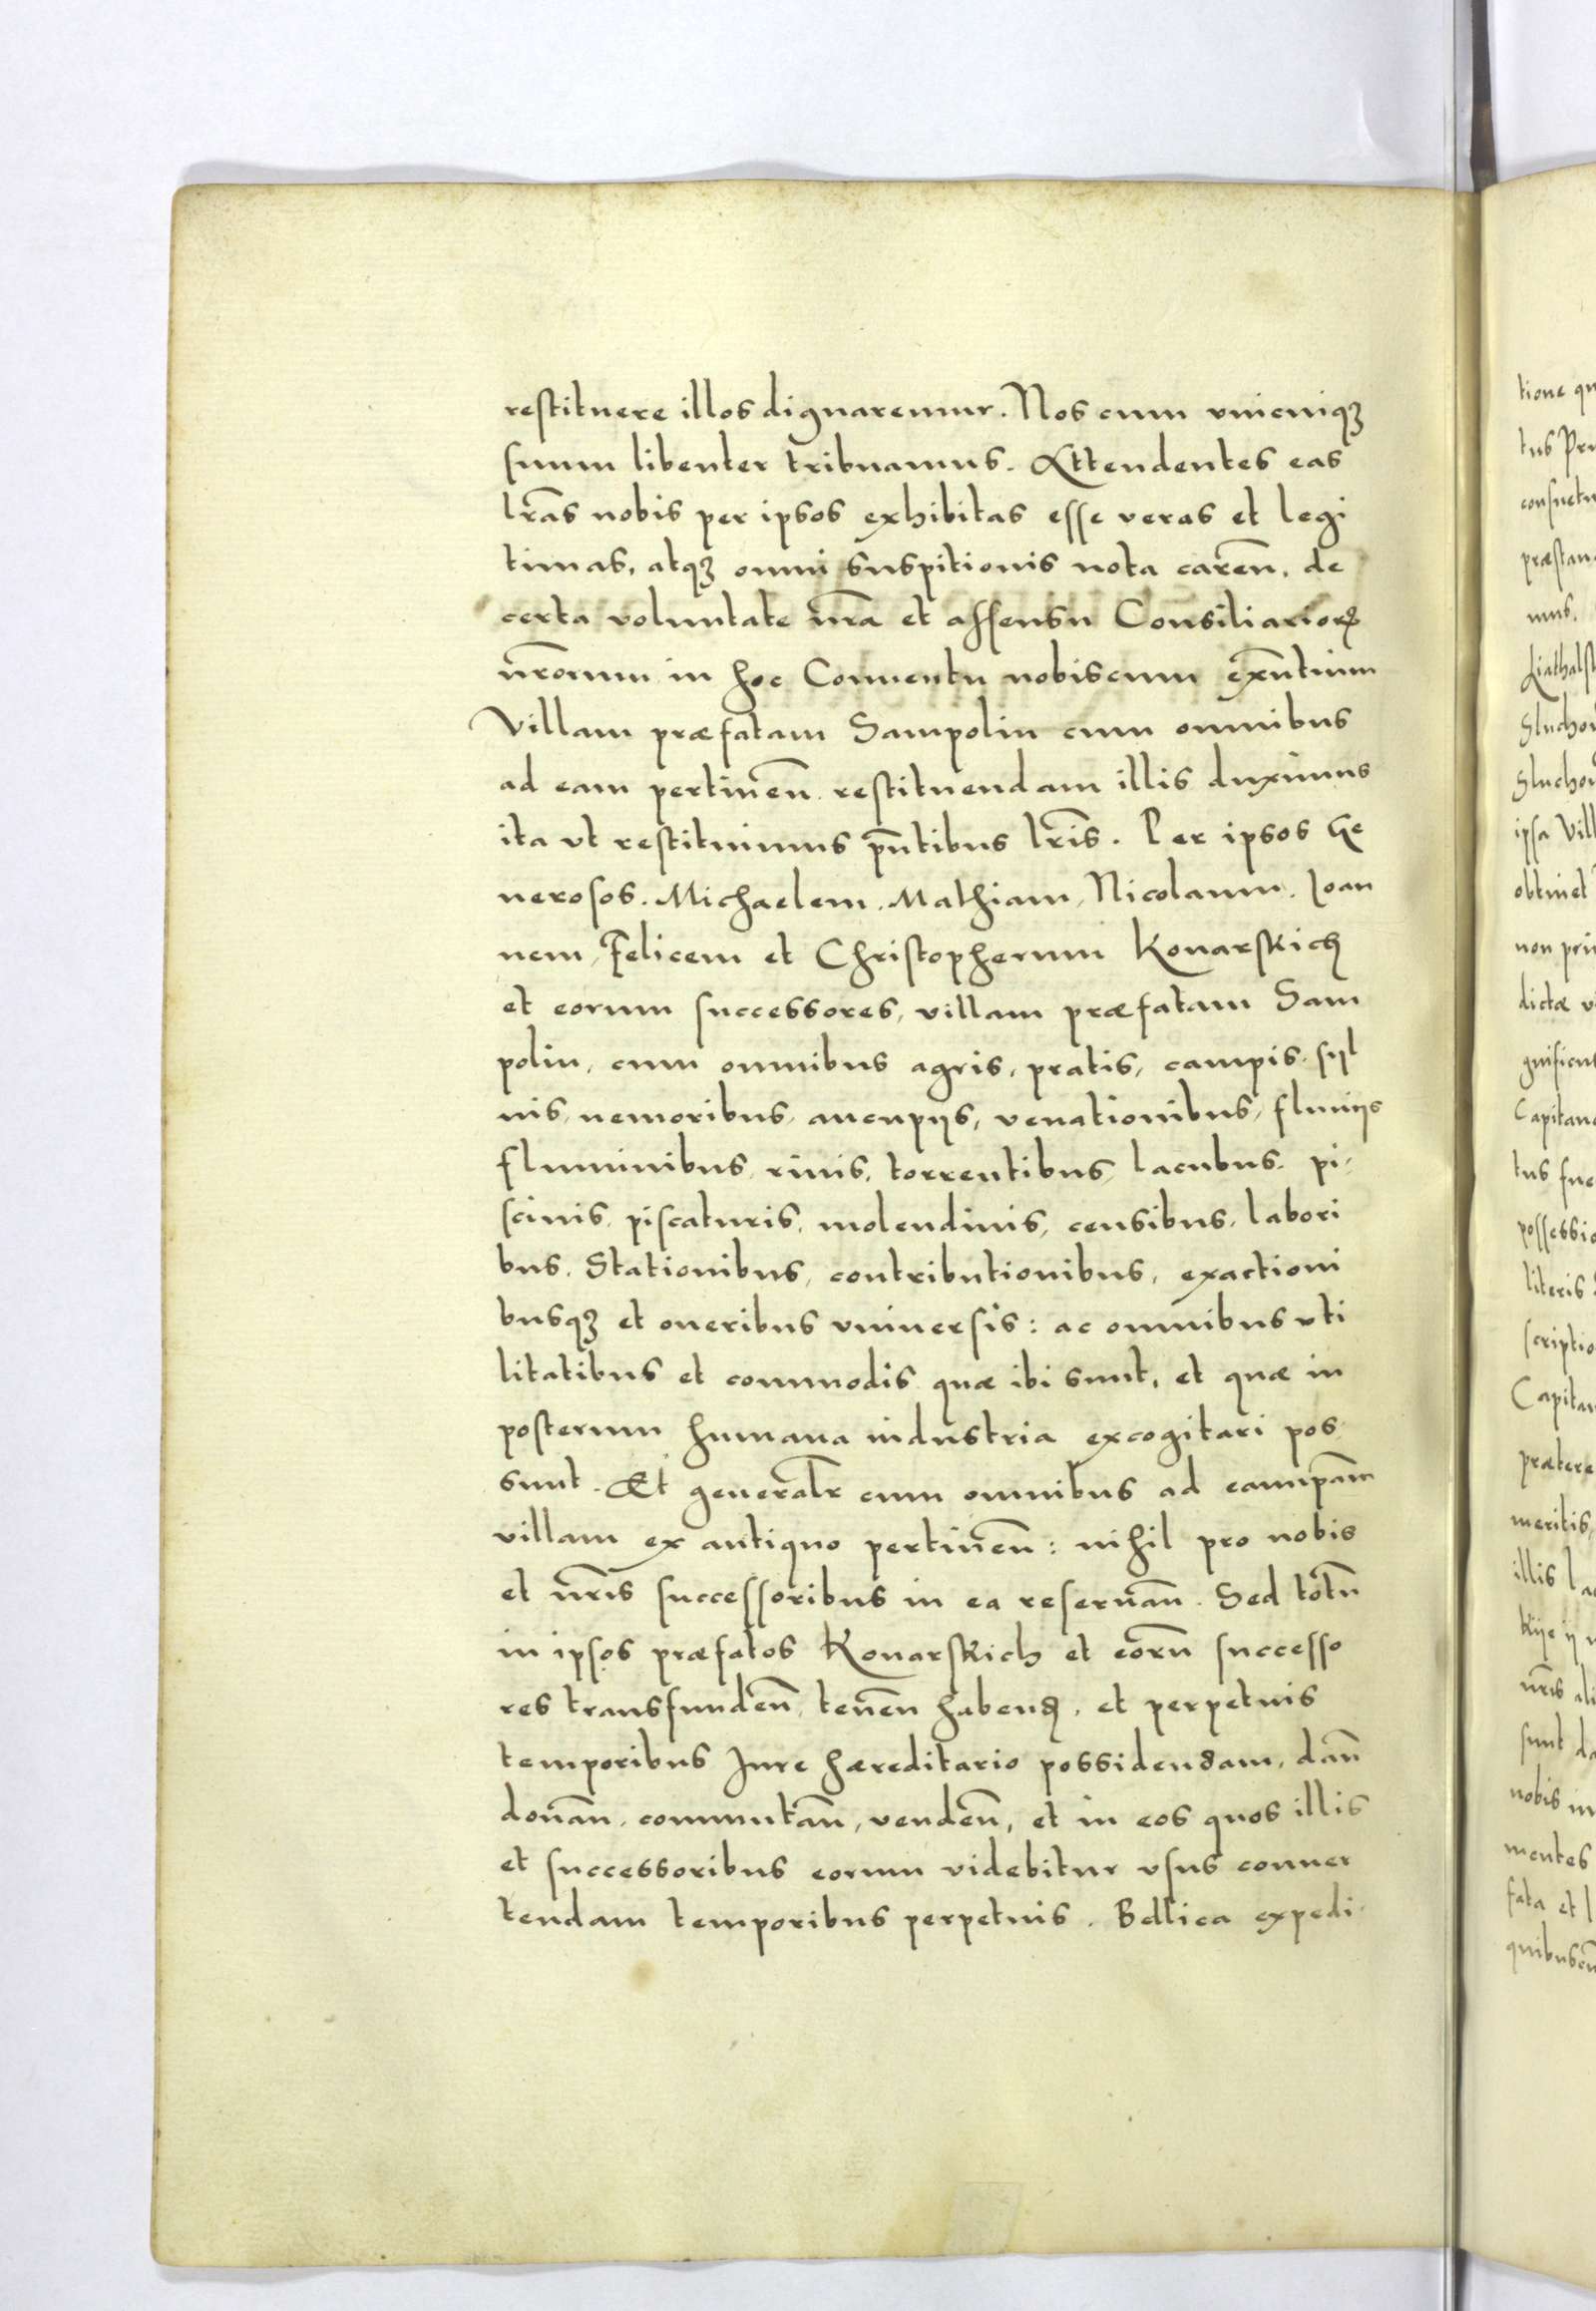 restituere illos dignaremur. Nos cum vnicuiqꝫ
suum libenter tribuamus. Attendentes eas
lr̃as nobis per ipsos exhibitas esse veras et legi
timas, atqꝫ omni suspitionis nota careñ, de
certa voluntate nr̃a et assensu Consiliarioꝝ
nr̃orum in hoc Conuentu nobiscum exñtium
Villam præfatam Sampolin cum omnibus
ad eam pertineñ restituendam illis duximus
ita vt restituimus pñtibus lr̃is. Per ipsos Ge
nerosos. Michaelem, Mathiam, Nicolaum, Ioan
nem, Felicem et Christopherum Konarskich
et eorum successores, villam præfatam Sam
polin, cum omnibus agris, pratis, campis, syl
uis, nemoribus, aucupijs, venationibus, fluuijs
fluminibus, riuis, torrentibus, lacubus, pi-
scinis, piscaturis, molendinis, censibus, labori
bus, Stationibus, contributionibus, exactioni
busqꝫ et oneribus vniuersis: ac omnibus vti
litatibus et commodis quæ ibi sunt, et quæ in
posterum humana industria excogitari pos
sunt. Et generalr̃ cum omnibus ad eam p̃am
villam ex antiquo pertineñ: nihil pro nobis
et nr̃is successoribus in ea reseruañ. Sed totũ
in ipsos præfatos Konarskich et eorũ successo
res transfundeñ, teneñ habenꝺ, et perpetuis
temporibus Iure hæreditario possidendam, dañ
donañ, commutañ, vendeñ, et in eos quos illis
et successoribus eorum videbitur vsus conuer
tendam temporibus perpetuis. Bellica expedi-
tione qu
tus Pr
consuetu
præstan
mus.
Sluchow
Sluchow
ipsa Vill
obtinet
non pri
dictæ v
gnificu
Capitan
tus fue
possessio
literis
scriptio
Capitan
prætere
meritis,
illis la
kije ij
nr̃is ali
sunt da
nobis in
mentes
fata et l
quibuscũ